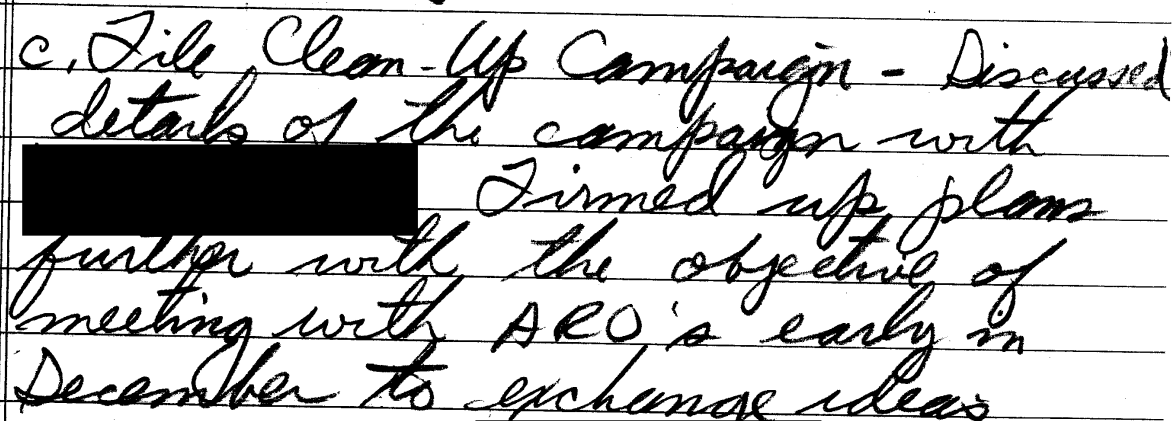 c. File Clean-Up Campaign - Discussed
details of the campaign with
Firmed up plans
further with the objective of
meeting with ARO's early in
December to exchange ideas